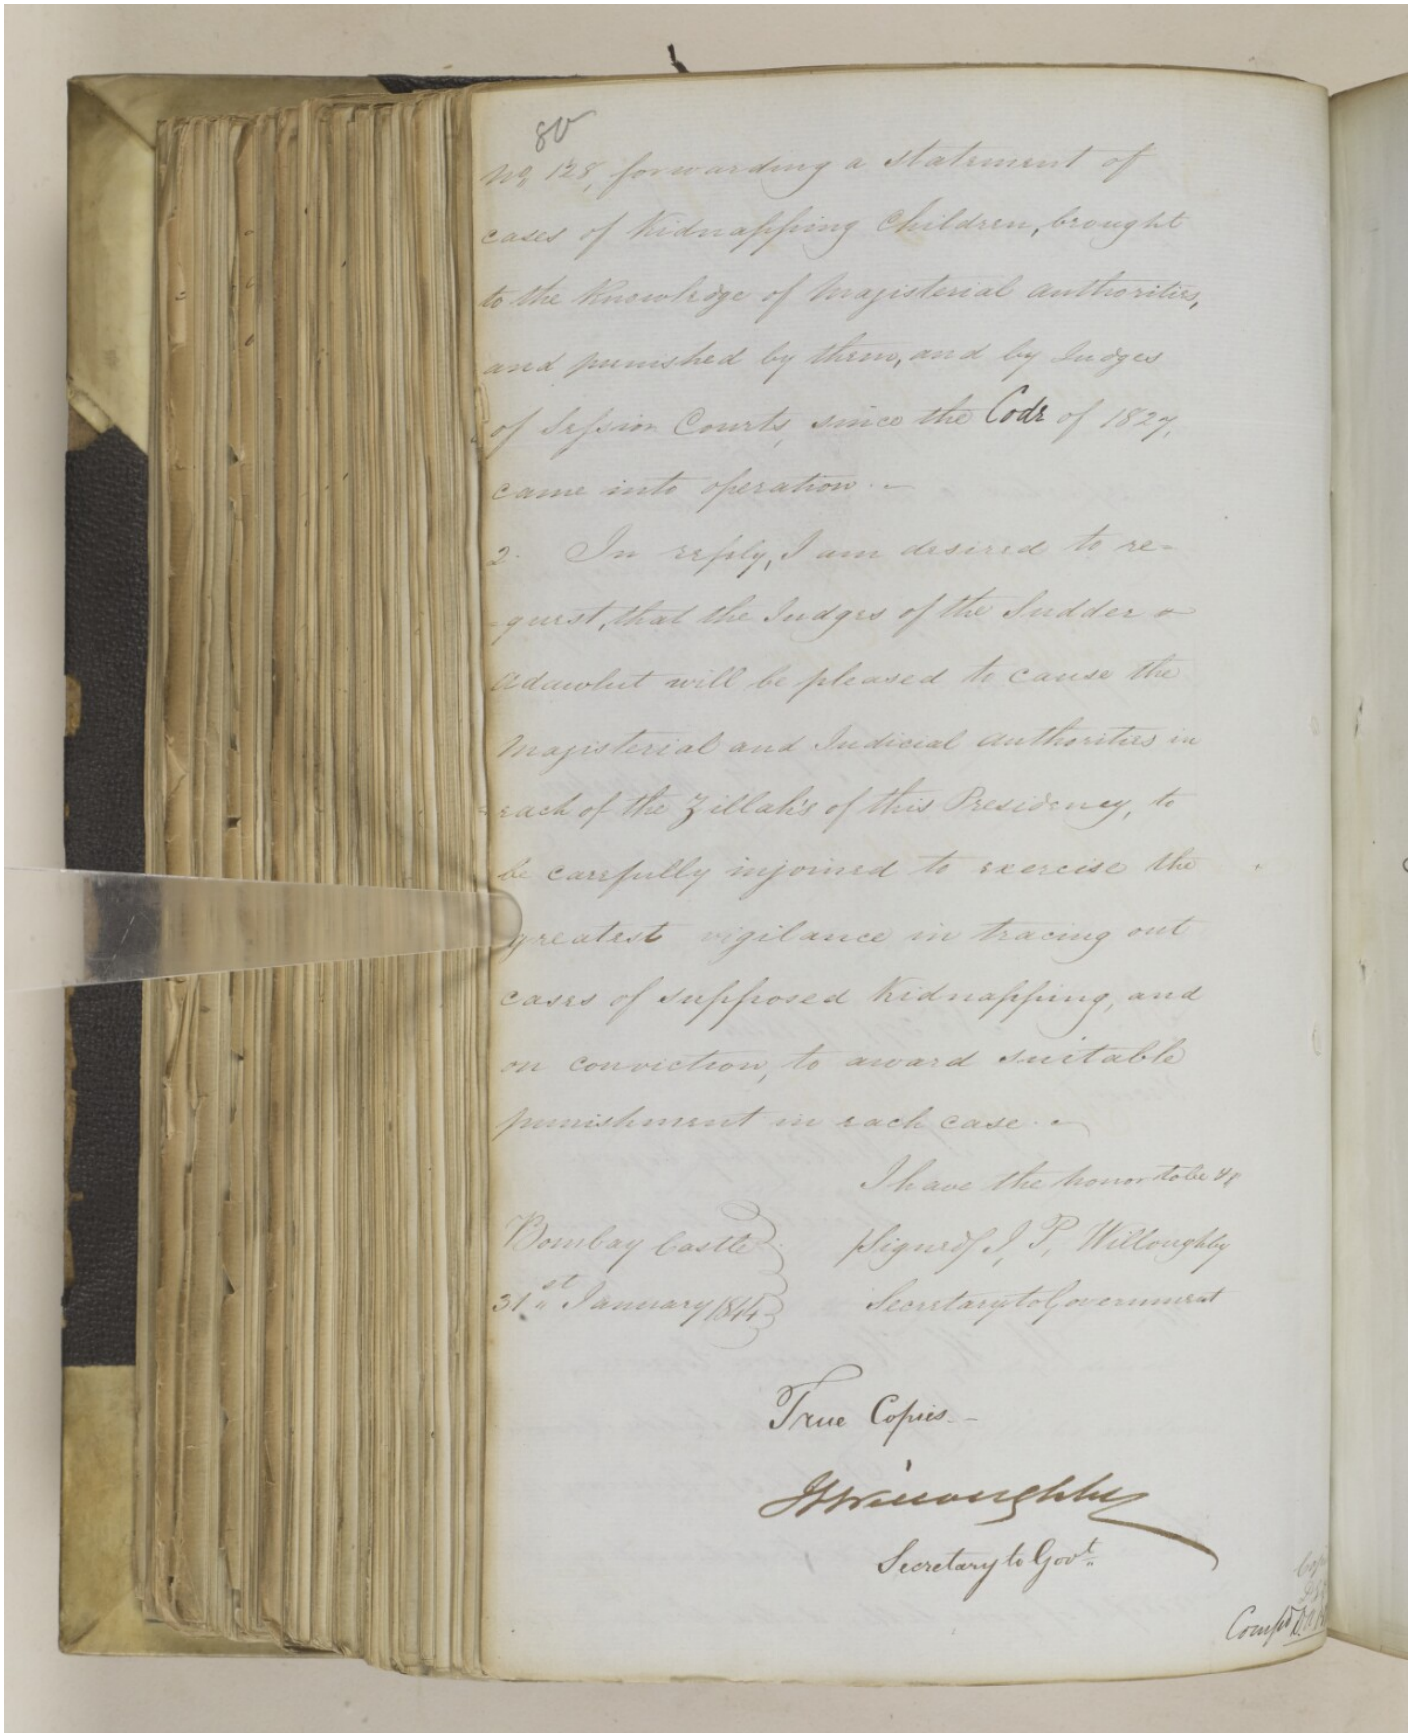 80
No 128, forwarding a statement of
cases of Kidnapping Children, brought
to the Knowledge of Magisterial authorities,
and punished by them, and by Judges
of Session Courts, since the Code of 1827,
came into operation. -
2. In reply, I am desired to re=
=quest, that the Judges of the Sudder
Adawlut will be pleased to cause the
Magisterial and Judicial authorities in
each of the Zillah's of this Presidency, to
be carefully injoined to exercise the
greatest vigilance in tracing out
cases of supposed Kidnapping, and
on conviction, to award suitable
punishment in each case. -
I have the honor to be &c
Bombay Castle signed J. P. Willoughby
31st January 1844 Secretary to Government
True Copies -
JP Willoughby
Secretary to Govt.
Comp'd